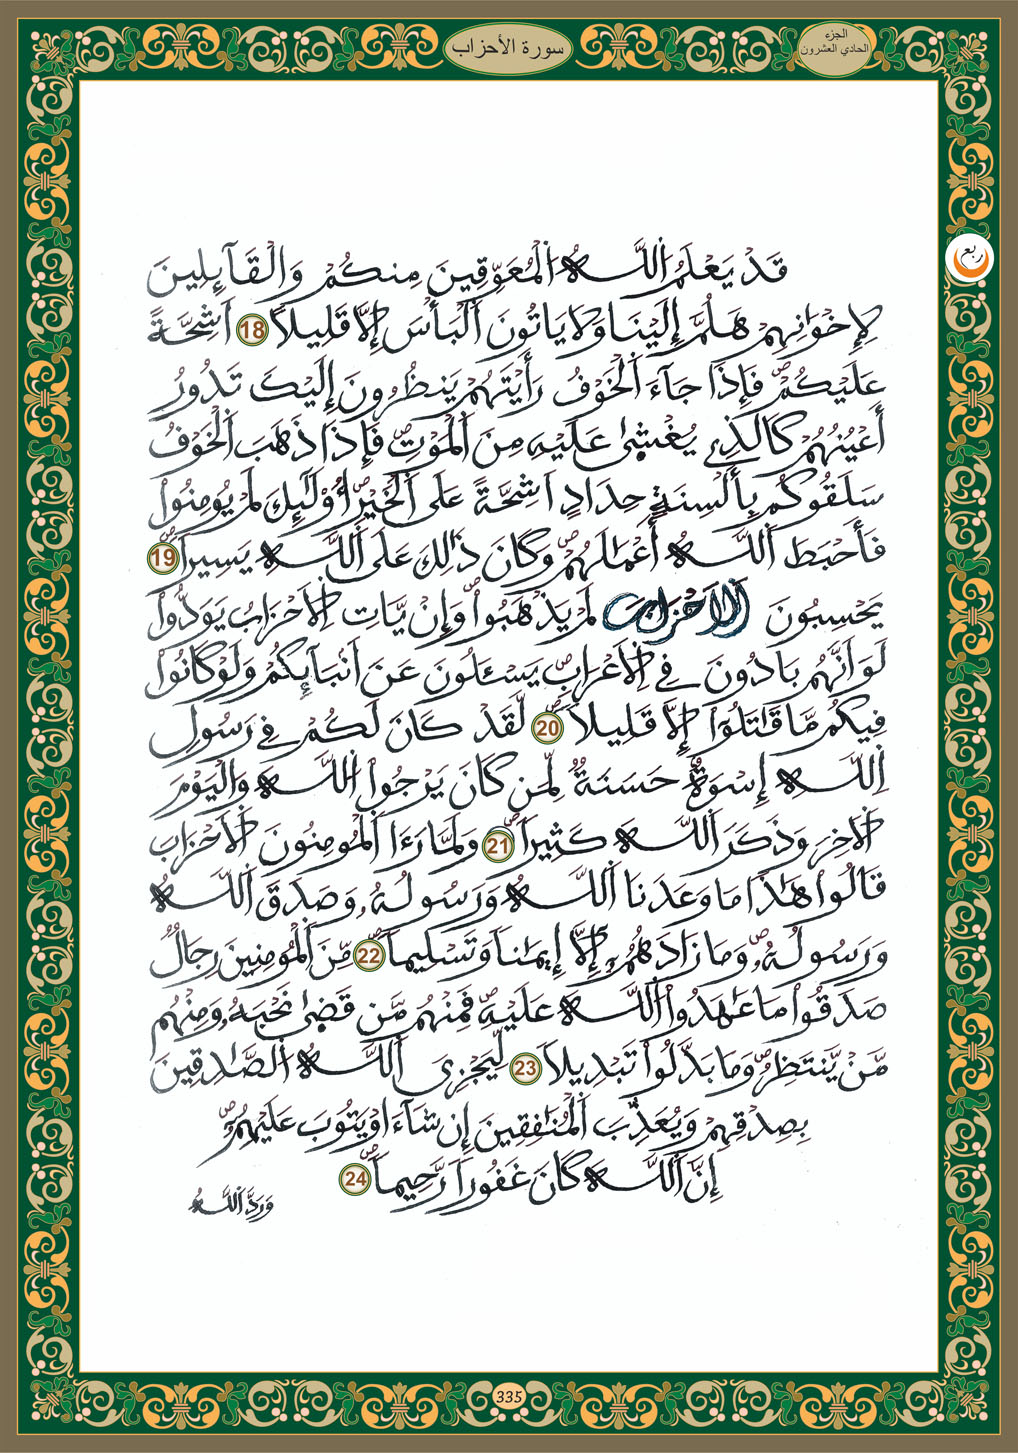 سورة الأحزاب
الجزء
الحادي العشرون
ربع
قَدْ يَعْلَمُ اُللَّهُ اُلْمُعَوِّقِينَ مِنكُمْ وَالْقَآئِلِينَ
لِإِخْوَٰنِهِمْ هَلُمَّ إِلَيْنَا وَلَا يَاتُونَ اَلْبَأْسَ إِلَّا قَلِيلاً 18 اَشِحَّةً
عَلَيْكُمْ فَإِذَا جَآءَ اَلْخَوْفُ رَأَيْتَهُمْ يَنظُرُونَ إِلَيْكَ تَدُورُ
أَعْيُنُهُمْ كَالذِے يُغْشَىٰ عَلَيْهِ مِنَ اَلْمَوْتِ فَإِذَا ذَهَبَ اَلْخَوْفُ
سَلَقُوكُم بِأَلْسِنَةٍ حِدَادٍ اَشِحَّةً عَلَى اَلْخَيْرِ أُوْلَٰٓئِكَ لَمْ يُومِنُواْ
فَأَحْبَطَ اَللَّهُ أَعْمَٰلَهُمْ وَكَانَ ذَٰلِكَ عَلَى اَللَّهِ يَسِيراً 19
يَحْسِبُونَ اَلَاحْزَابَ لَمْ يَذْهَبُواْ وَإِنْ يَّاتِ اِلَاحْزَابُ يَوَدُّواْ
لَوَ اَنَّهُم بَادُونَ فِے اِلَاعْرَابِ يَسْـَٔلُونَ عَنَ اَنۢبَآئِكُمْ وَلَوْ كَانُواْ
فِيكُم مَّا قَٰتَلُوٓاْ إِلَّا قَلِيلاً 20 لَّقَدْ كَانَ لَكُمْ فِے رَسُولِ
اِللَّهِ إِسْوَةٌ حَسَنَةٌ لِّمَن كَانَ يَرْجُواْ اُللَّهَ وَالْيَوْمَ
اَلَاخِرَ وَذَكَرَ اَللَّهَ كَثِيراً 21 وَلَمَّا رَءَا اَلْمُومِنُونَ اَلَاحْزَابَ
قَالُواْ هَٰذَا مَا وَعَدَنَا اَللَّهُ وَرَسُولُهُۥ وَصَدَقَ اَللَّهُ
وَرَسُولُهُۥ وَمَا زَادَهُمُۥٓ إِلَّآ إِيمَٰناً وَتَسْلِيماً 22 مِّنَ اَلْمُومِنِينَ رِجَالٌ
صَدَقُواْ مَا عَٰهَدُواْ اُللَّهَ عَلَيْهِ فَمِنْهُم مَّن قَضَىٰ نَحْبَهُۥ وَمِنْهُم
مَّنْ يَّنتَظِرُ وَمَا بَدَّلُواْ تَبْدِيلاً 23 لِّيَجْزِىَ اَللَّهُ اُلصَّٰدِقِينَ
بِصِدْقِهِمْ وَيُعَذِّبَ اَلْمُنَٰفِقِينَ إِن شَآءَ اَوْ يَتُوبَ عَلَيْهِمُۥٓ
إِنَّ اَللَّهَ كَانَ غَفُوراً رَّحِيماً 24
وَرَدَّ اَللَّهُ
335